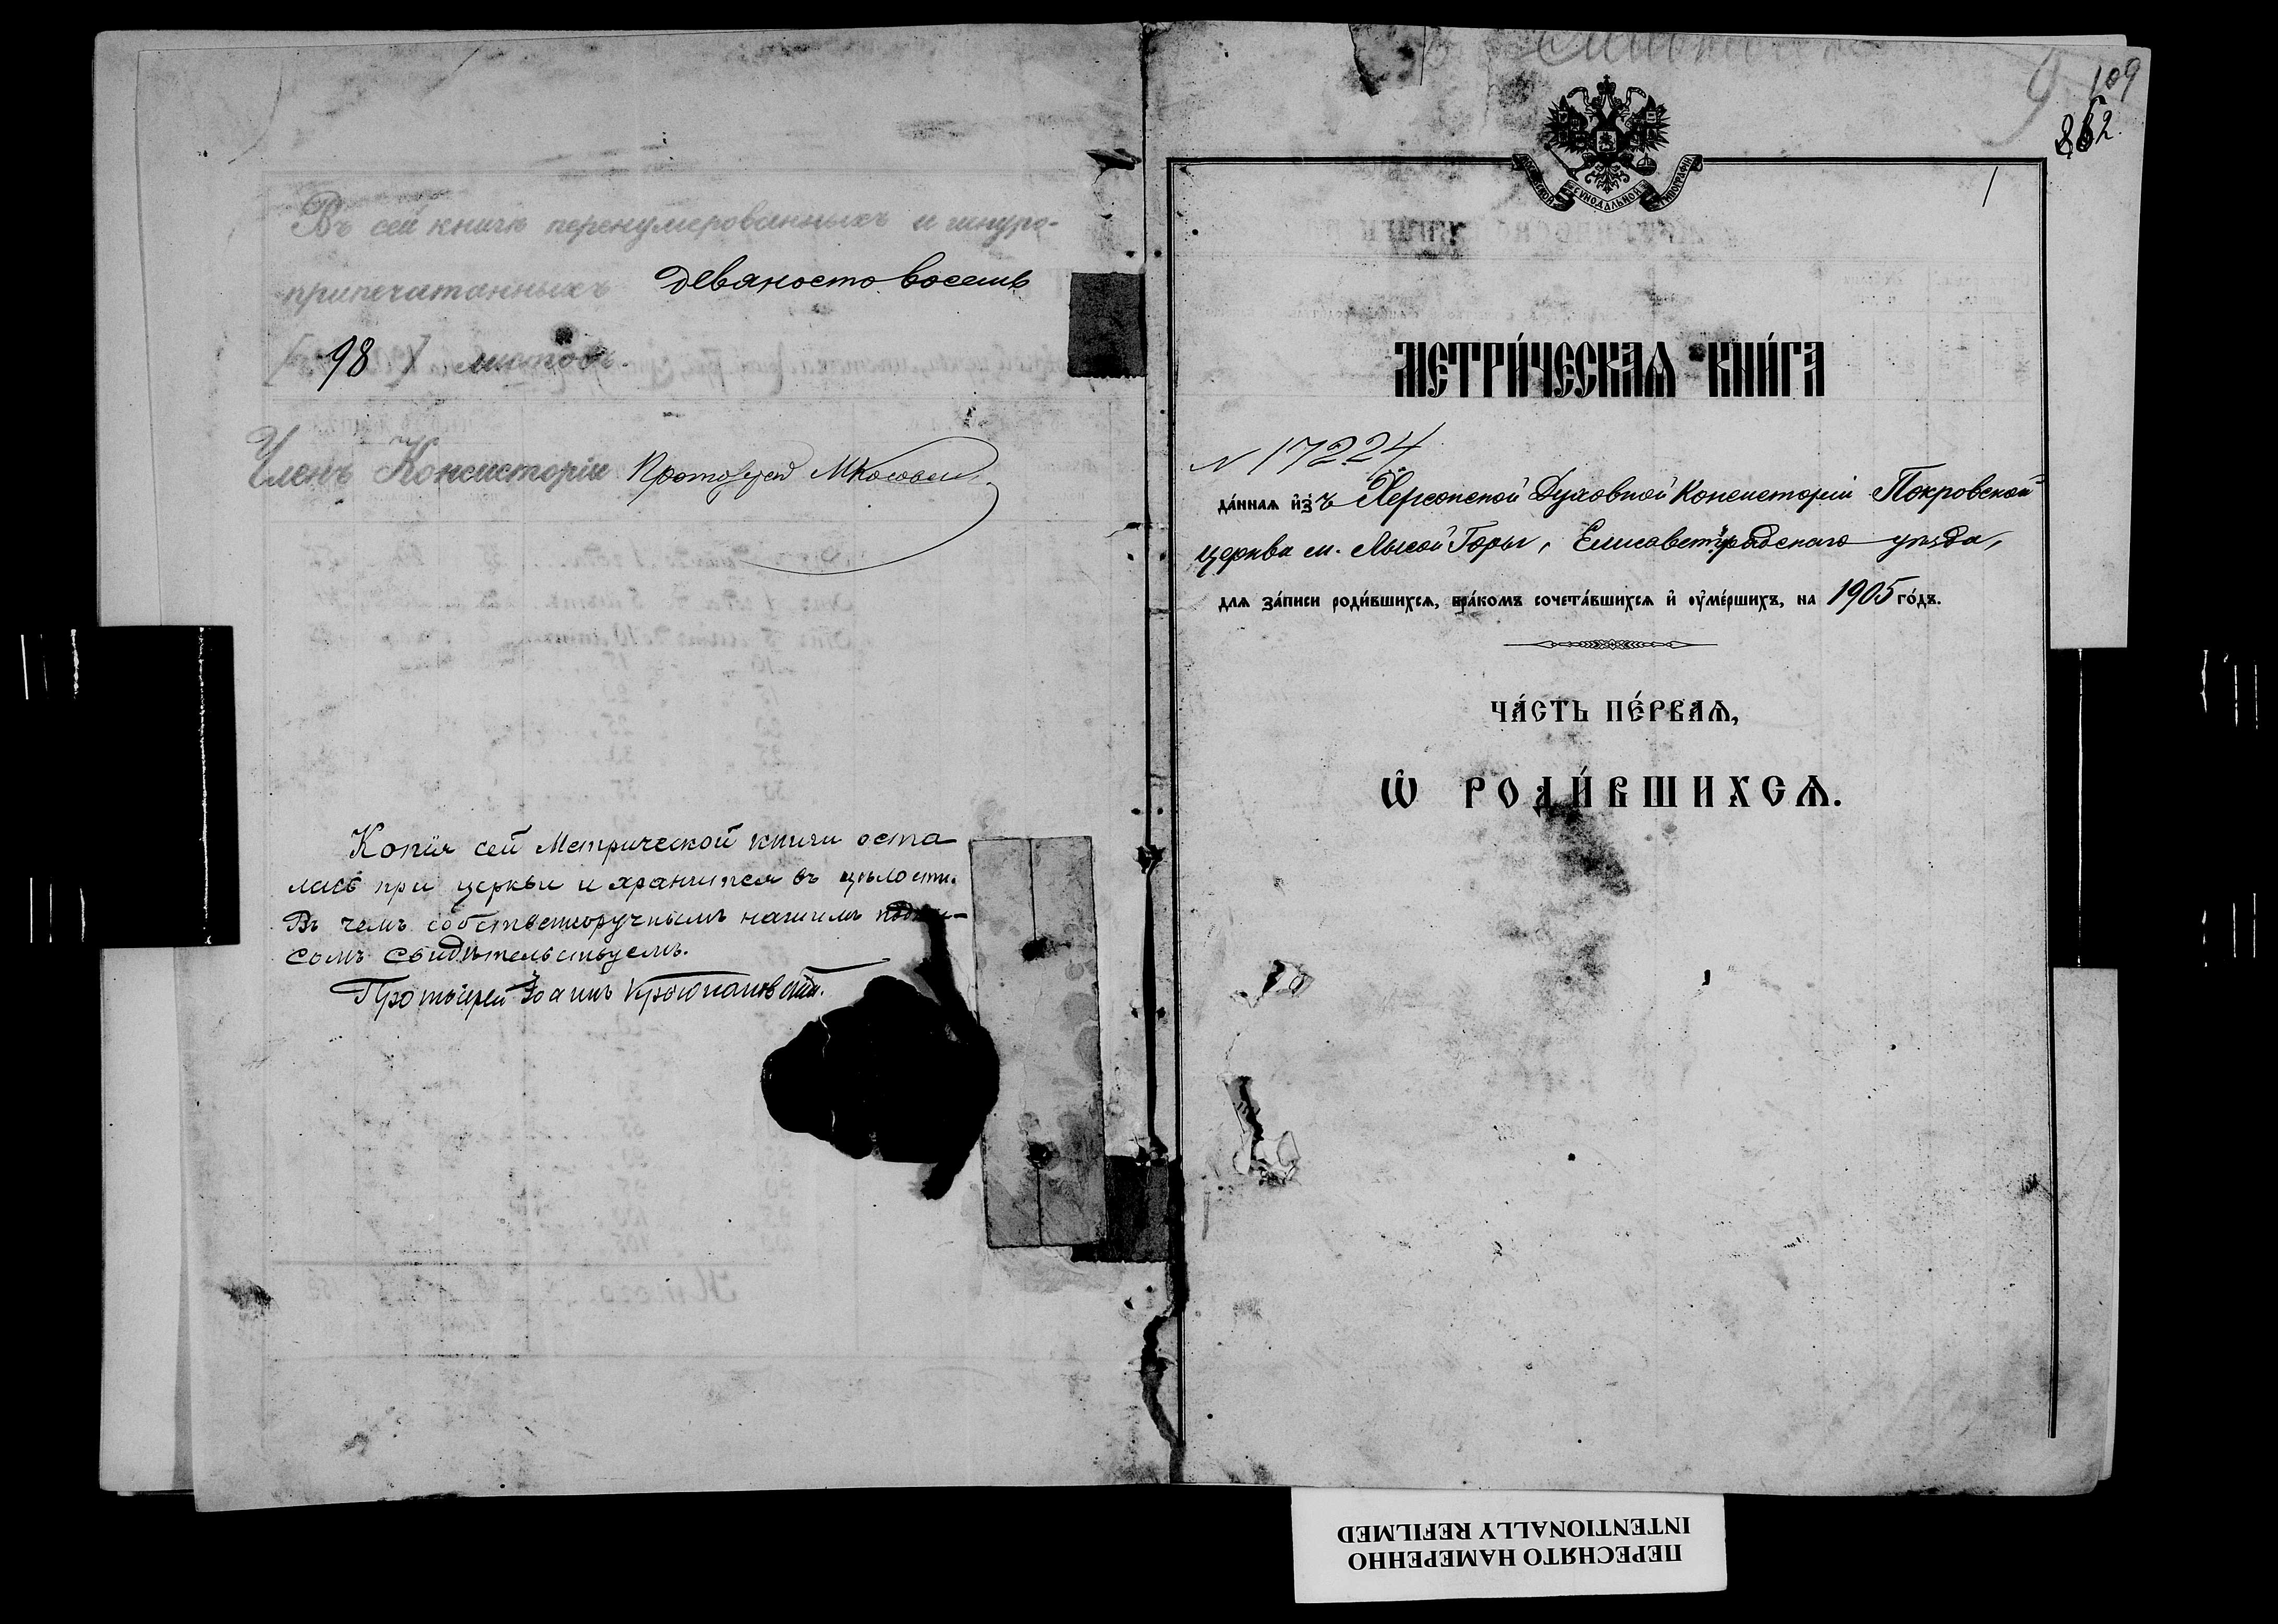 Въ сей книгѣ перенумерованныхъ и шнуро-
припечатанныхъ девяносто восемь
[98] листовъ.
Членъ Консисторіи Протоіерей
Копія сей Метрической книги оста
лась при церкви и хранится въ цѣлости.
Въ чемъ собственоручнымъ нашимъ подпи-
сомъ свидѣтельствуемъ.
Протоіерей Іоаннъ
9 109
862.
1
МОСКОВСКОЙ СѴНОДАЛЬНОЙ ТИПОГРАФІИ
МЕТРИ́ЧЕСКАѦ КНИ́ГА
№ 17224
да́ннаѧ и҆зъ Херсонской Духовной Консисторіи Покровской
церкви м. Лысой Горы, Елисаветградскаго уѣзда,
для за́писи роди́вшихсѧ, бра́комъ сочета́вшихсѧ и҆ оу҆ме́ршихъ, на 1905 го́дъ.
ЧА́СТЬ ПЕ́РВАѦ,
Ѡ҆ РОДИ́ВШИХСѦ.
ПЕРЕСНЯТО НАМЕРЕННО
INTENTIONALLY REFILMED